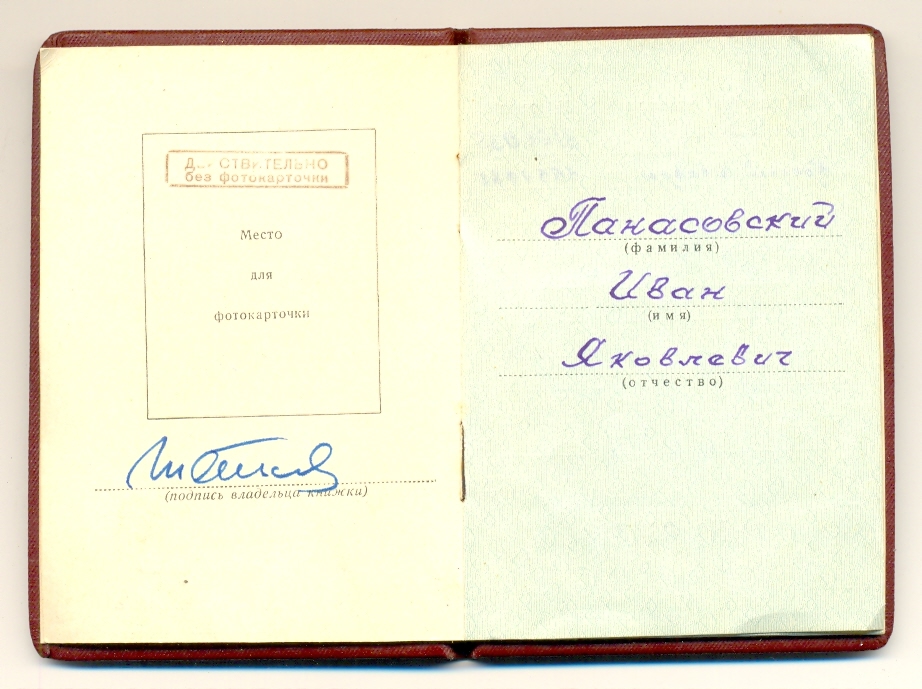 Д... СТВИТЕЛЬНО
без фотокарточки
Место
для
фотокарточки
(подпись владельца книжки)
Панасовский
(фамилия)
Иван
(имя)
Яковлевич
(отчество)